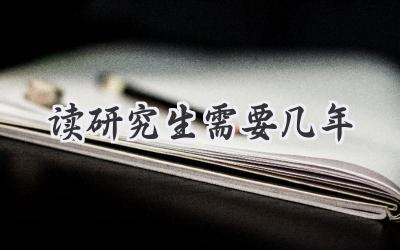 读研究生需要几年